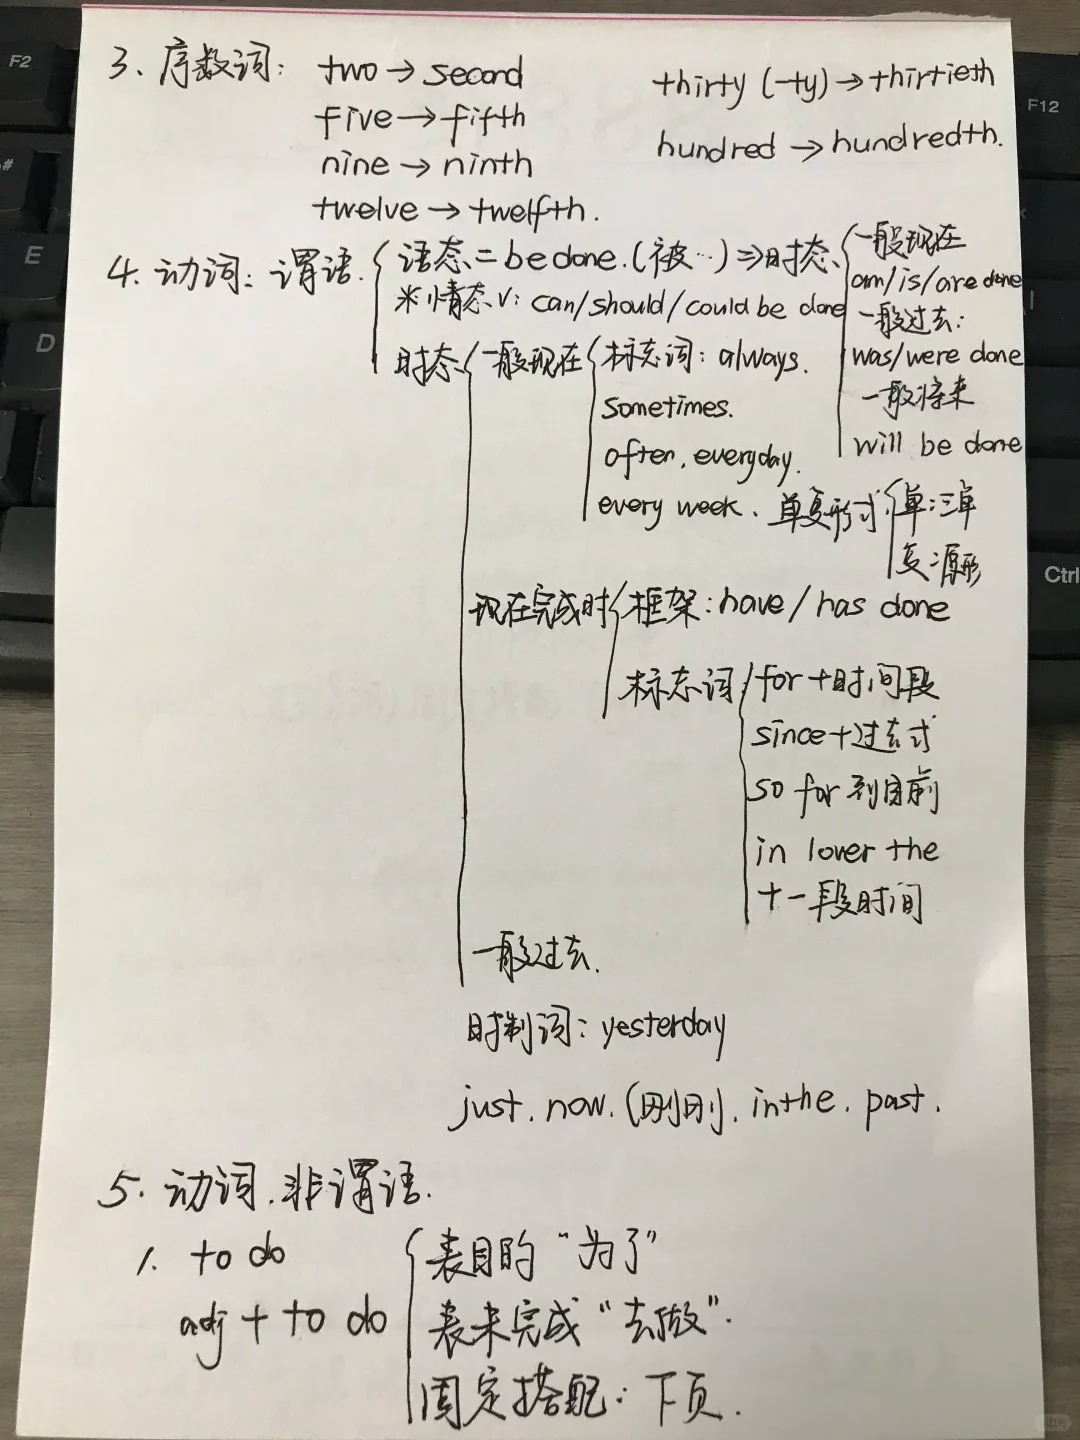 3、序数词: two→second thirty(-ty)→thirtieth
five→fifth
nine→ninth hundred→hundredth.
twelve→twelfth.
4.动词: 谓语. 语态二 be done.(被…)⇒时态 一般现在
am/is/are done
米情态v: can/should/could be done
一般过去:
时态 一般现在 标志词: always. was/were done
sometimes. 一般将来
often, everyday. will be done
every week. 单复形式: 单:三单
复:原形
现在完成时 框架: have/has done
标志词 for+时间段
since+过去式
so far 到目前
in lover the
十一段时间
一般过去.
时制词: yesterday
just. now. (刚刚). in the. past.
5.动词.非谓语.
1. to do 表目的“为了”
adj + to do 表未完成“去做”.
固定搭配: 下页.
F2
#
E
D
F12
Ctrl